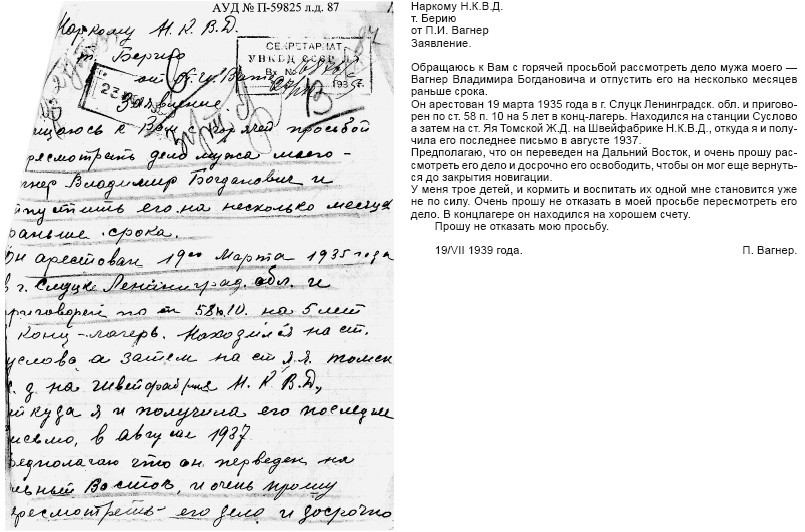 АУД № П-59825 л.д. 87
Наркому Н. К. В. Д.
т. Берию
от П. И. Вагнер
СЕКРЕТАРИАТ
НКВД СССР
Вх. №
193
23
Заявление.
щаюсь к Вам с горячей просьбой
ресмотреть дело мужа моего –
гнер Владимир Богданович и
пустить его на несколько месяца
раньше срока.
Он арестован 19го Марта 1935 года
в г. Слуцке Ленинград. обл. и
риговорен по ст 58 п. 10. на 5 лет
Конц-лагерь. Находился на ст.
услова а затем на ст Яя. томск
ж. д на швейфабрия Н. К. В. Д,
ткуда я и получила его последне
исьмо, в августе 1937
редполагаю что он переведен на
льный Восток, и очень прошу
ресмотреть его дело и досрочно
Наркому Н.К.В.Д.
т. Берию
от П.И. Вагнер
Заявление.
Обращаюсь к Вам с горячей просьбой рассмотреть дело мужа моего —
Вагнер Владимира Богдановича и отпустить его на несколько месяцев
раньше срока.
Он арестован 19 марта 1935 года в г. Слуцк Ленинградск. обл. и пригово-
рен по ст. 58 п. 10 на 5 лет в конц-лагерь. Находился на станции Суслово
а затем на ст. Яя Томской Ж.Д. на Швейфабрике Н.К.В.Д., откуда я и полу-
чила его последнее письмо в августе 1937.
Предполагаю, что он переведен на Дальний Восток, и очень прошу рас-
смотреть его дело и досрочно его освободить, чтобы он мог еще вернуть-
ся до закрытия новигации.
У меня трое детей, и кормить и воспитать их одной мне становится уже
не по силу. Очень прошу не отказать в моей просьбе пересмотреть его
дело. В концлагере он находился на хорошем счету.
Прошу не отказать мою просьбу.
19/VII 1939 года. П. Вагнер.